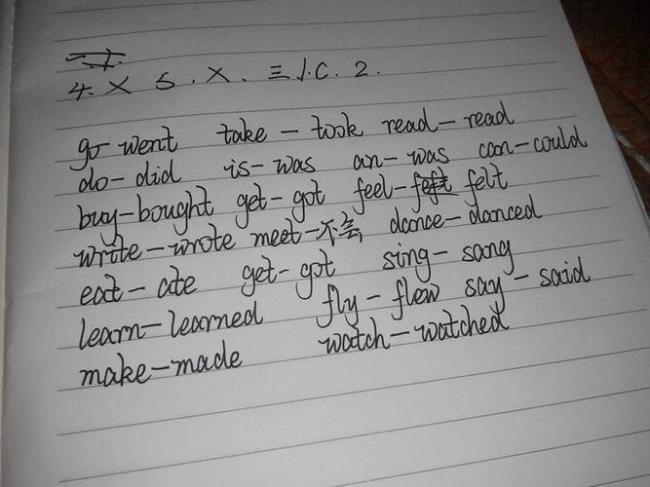 4. X 5. X. 三 1. C. 2.
go-went take-took read-read
do-did is-was an-was can-could
buy-bought get-got feel-felt
write-wrote meet-不会 dance-danced
eat-ate get-got sing-sang
learn-learned fly-flew say-said
make-made watch-watched